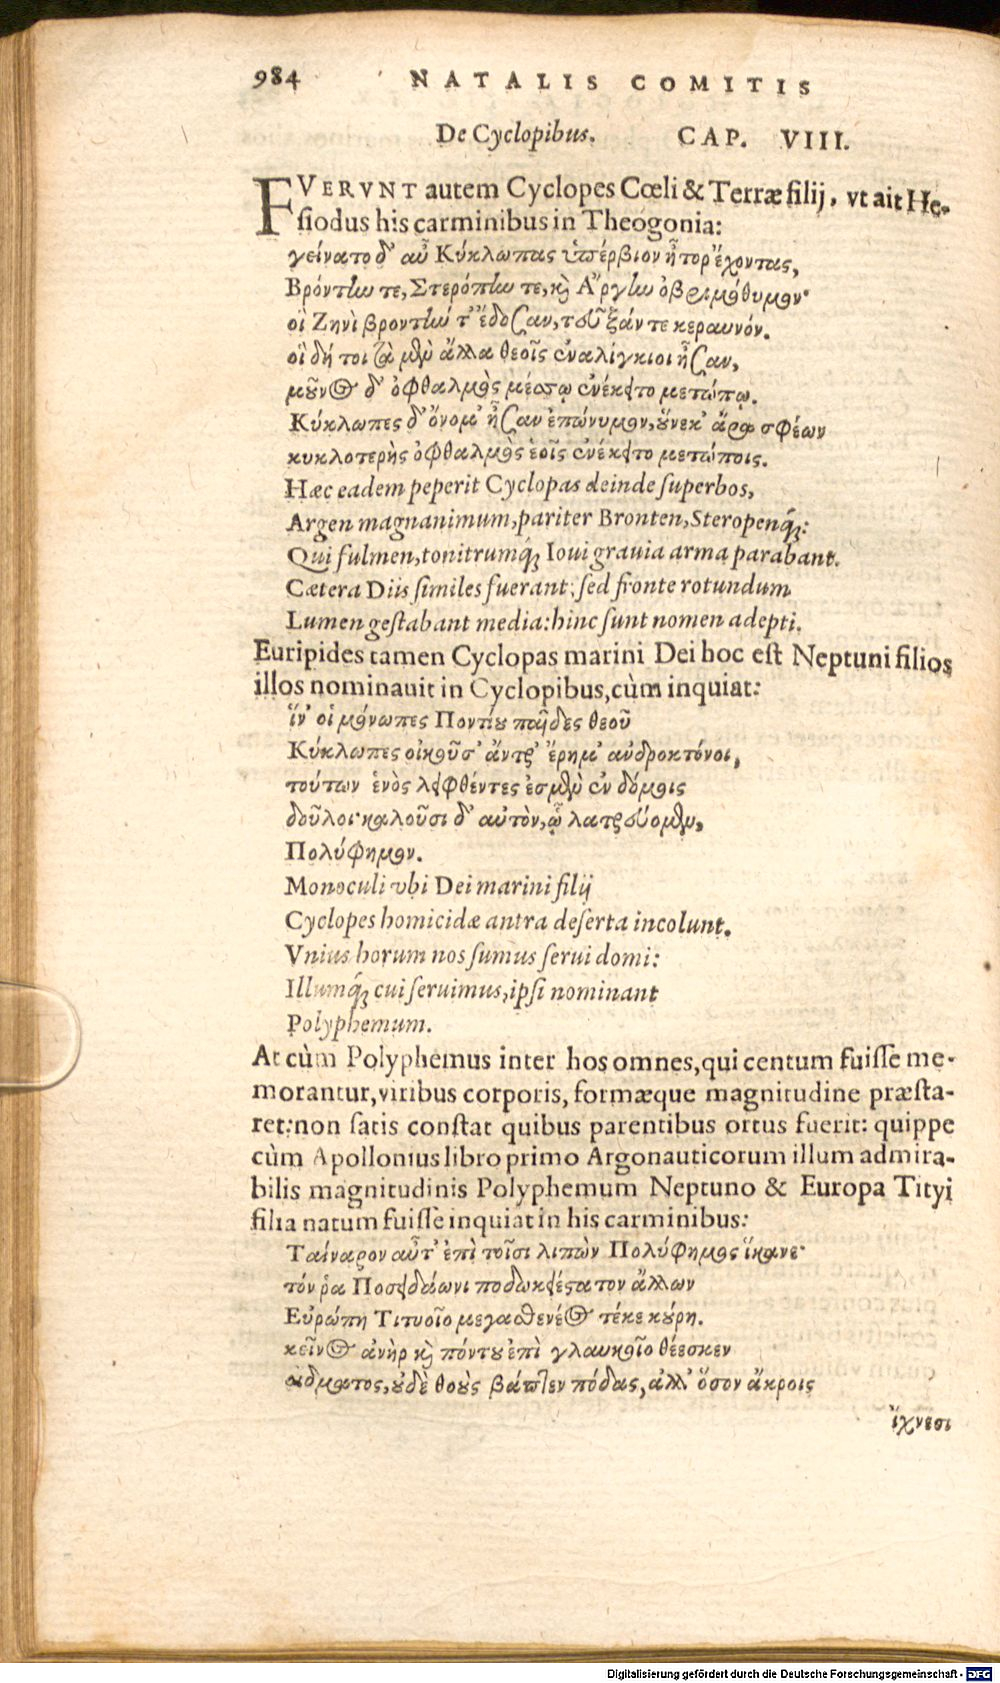 984 NATALIS COMITIS
De Cyclopibus. CAP. VIII.
FVERVNT autem Cyclopes Cœli & Terræ filij, vt ait He-
siodus his carminibus in Theogonia:
γείνατο δ' αὖ Κύκλωπας ὑπέρβιον ἦτορ ἔχοντας,
Βρόντίω τε, Στερόπίω τε, κỳ Ἄργίω ὀβριμόθυμον·
οἳ Ζηνὶ βροντίώ τ' ἔδοσαν, τεῦξάν τε κεραυνόν.
οἳ δή τοι τὰ μὲν ἄλλα θεοῖς ἐναλίγκιοι ἦσαν,
μοῦνος δ' ὀφθαλμὸς μέσσῳ ἐνέκειτο μετώπῳ.
Κύκλωπες δ' ὄνομ' ἦσαν ἐπώνυμον, οὕνεκ' ἄρα σφέων
κυκλοτερὴς ὀφθαλμὸς ἑοῖς ἐνέκειτο μετώποις.
Hæc eadem peperit Cyclopas deinde superbos,
Argen magnanimum, pariter Bronten, Steropenq́;:
Qui fulmen, tonitrumq́; Ioui grauia arma parabant.
Cætera Diis similes fuerant; sed fronte rotundum
Lumen gestabant media: hinc sunt nomen adepti.
Euripides tamen Cyclopas marini Dei hoc est Neptuni filios
illos nominauit in Cyclopibus, cùm inquiat:
ἵν' οἱ μόνωπες Ποντίου παῖδες θεοῦ
Κύκλωπες οἰκοῦσ' ἄντρ' ἔρημ' ἀνδροκτόνοι,
τούτων ἑνὸς ληφθέντες ἐσμὲν ἐν δόμοις
δοῦλοι· καλοῦσι δ' αὐτὸν, ᾧ λατρεύομεν,
Πολύφημον.
Monoculi vbi Dei marini filij
Cyclopes homicidæ antra deserta incolunt.
Vnius horum nos sumus serui domi:
Illumq́; cui seruimus, ipsi nominant
Polyphemum.
At cùm Polyphemus inter hos omnes, qui centum fuisse me-
morantur, viribus corporis, formæque magnitudine præsta-
ret: non satis constat quibus parentibus ortus fuerit: quippe
cùm Apollonius libro primo Argonauticorum illum admira-
bilis magnitudinis Polyphemum Neptuno & Europa Tityi
filia natum fuisse inquiat in his carminibus:
Ταίναρον αὖτ' ἐπὶ τοῖσι λιπὼν Πολύφημος ἵκανε·
τόν ῥα Ποσειδάωνι ποδωκείεστατον ἄλλων
Εὐρώπη Τιτυοῖο μεγασθενέος τέκε κούρη.
κεῖνος ἀνὴρ κỳ πόντου ἐπὶ γλαυκοῖο θέεσκεν
οἴδματος, οὐδὲ θοοὺς βάπτεν πόδας, ἀλλ' ὅσον ἄκροις
ἴχνεσι
Digitalisierung gefördert durch die Deutsche Forschungsgemeinschaft - DFG